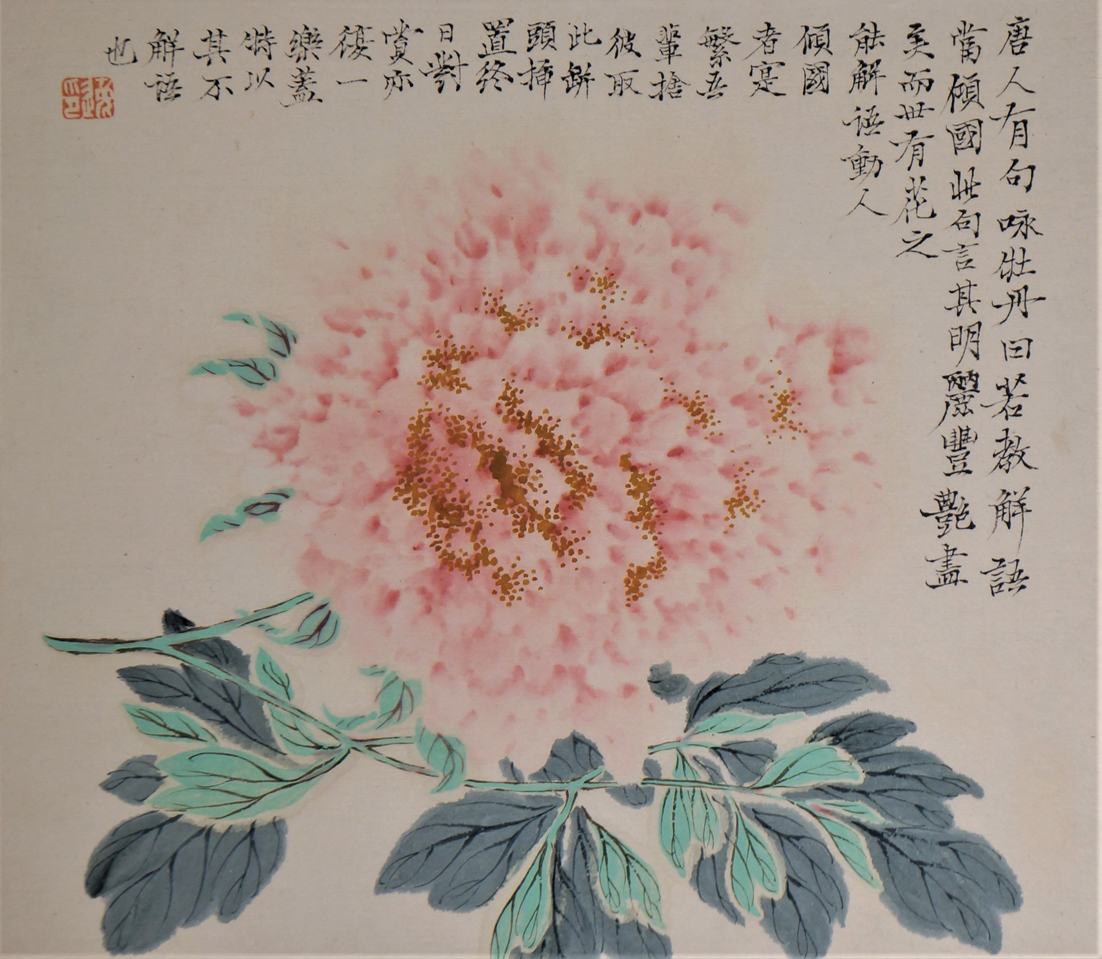 唐人有句咏牡丹曰若教解語
當傾國此句言其明麗豐艷盡
美而世有花之
能解語動人
傾國
者寔
繁吾
輩捨
彼取
此缾
頭揷
置終
日對
賞亦
復一
樂蓋
特以
其不
解語
也